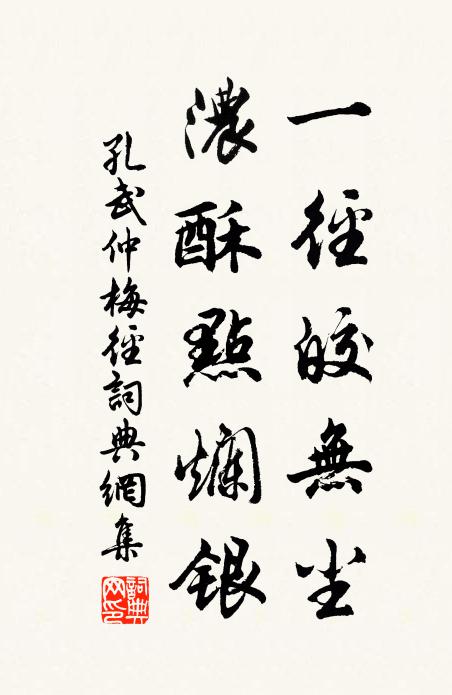 一徑皎無尘
濃酥點爛銀
孔武仲梅徑詞典網集
詞典網印